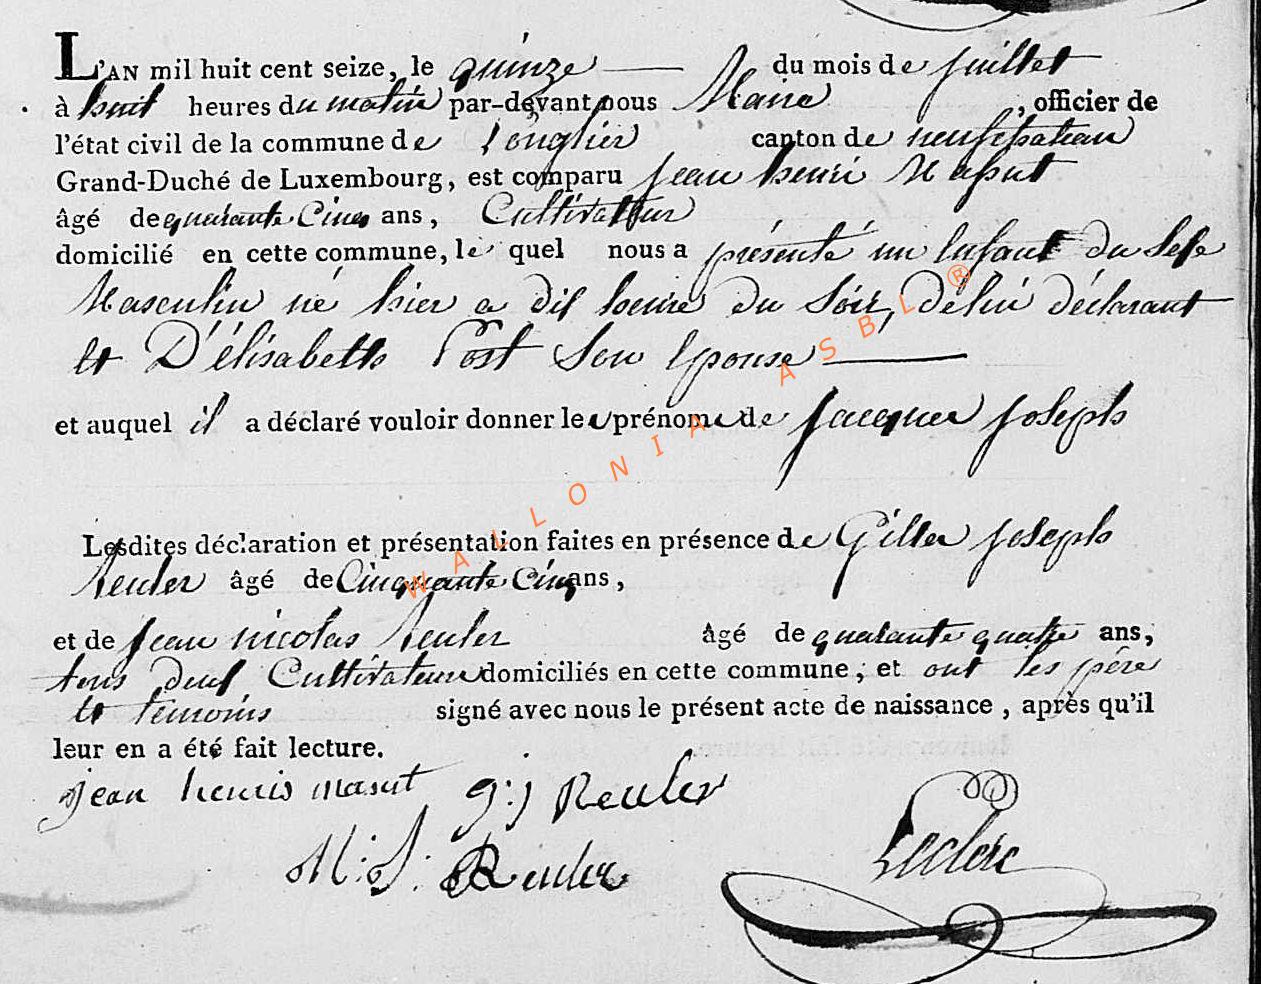 L'AN mil huit cent seize, le quinze du mois de juillet
à huit heures du matin par-devant nous Maire, officier de
l'état civil de la commune de Longlier canton de neufchateau
Grand-Duché de Luxembourg, est comparu jean henri Masut
âgé de quarante Cinq ans, Cultivateur
domicilié en cette commune, le quel nous a présenté un Enfant du Sexe
Masculin né hier a dix heure du Soir, de lui déclarant
et D'élisabeth Post Son Epouse
et auquel il a déclaré vouloir donner les prénoms de jacques joseph
Lesdites déclaration et présentation faites en présence de Gilles joseph
Reuler âgé de Cinquante Cinq ans,
et de jean nicolas Reuler âgé de quarante quatre ans,
tous deux Cultivateurs domiciliés en cette commune; et ont les père
et témoins signé avec nous le présent acte de naissance, après qu'il
leur en a été fait lecture.
jean henris masut g: j Reuler
Reuler Leclerc
WALLONIA ASBL ®